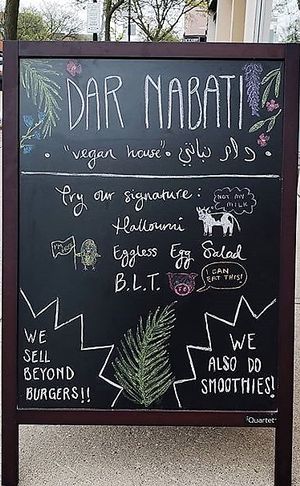 DAR NABATI
• "vegan house" • دار نباتي •
Try our signature:
NOT MY
MILK
Halloumi
Eggless Egg Salad
B.L.T.
I CAN
EAT THIS!
WE
SELL
BEYOND
BURGERS!!
WE
ALSO DO
SMOOTHIES!
Quartet